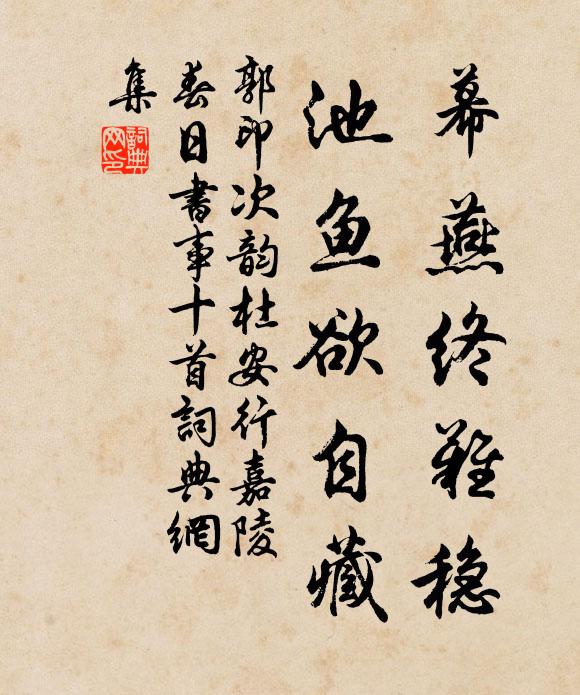 幕燕终难稳
池鱼欲自藏
郭印次韵杜安行嘉陵
春日书事十首詞典網
集
詞典網印